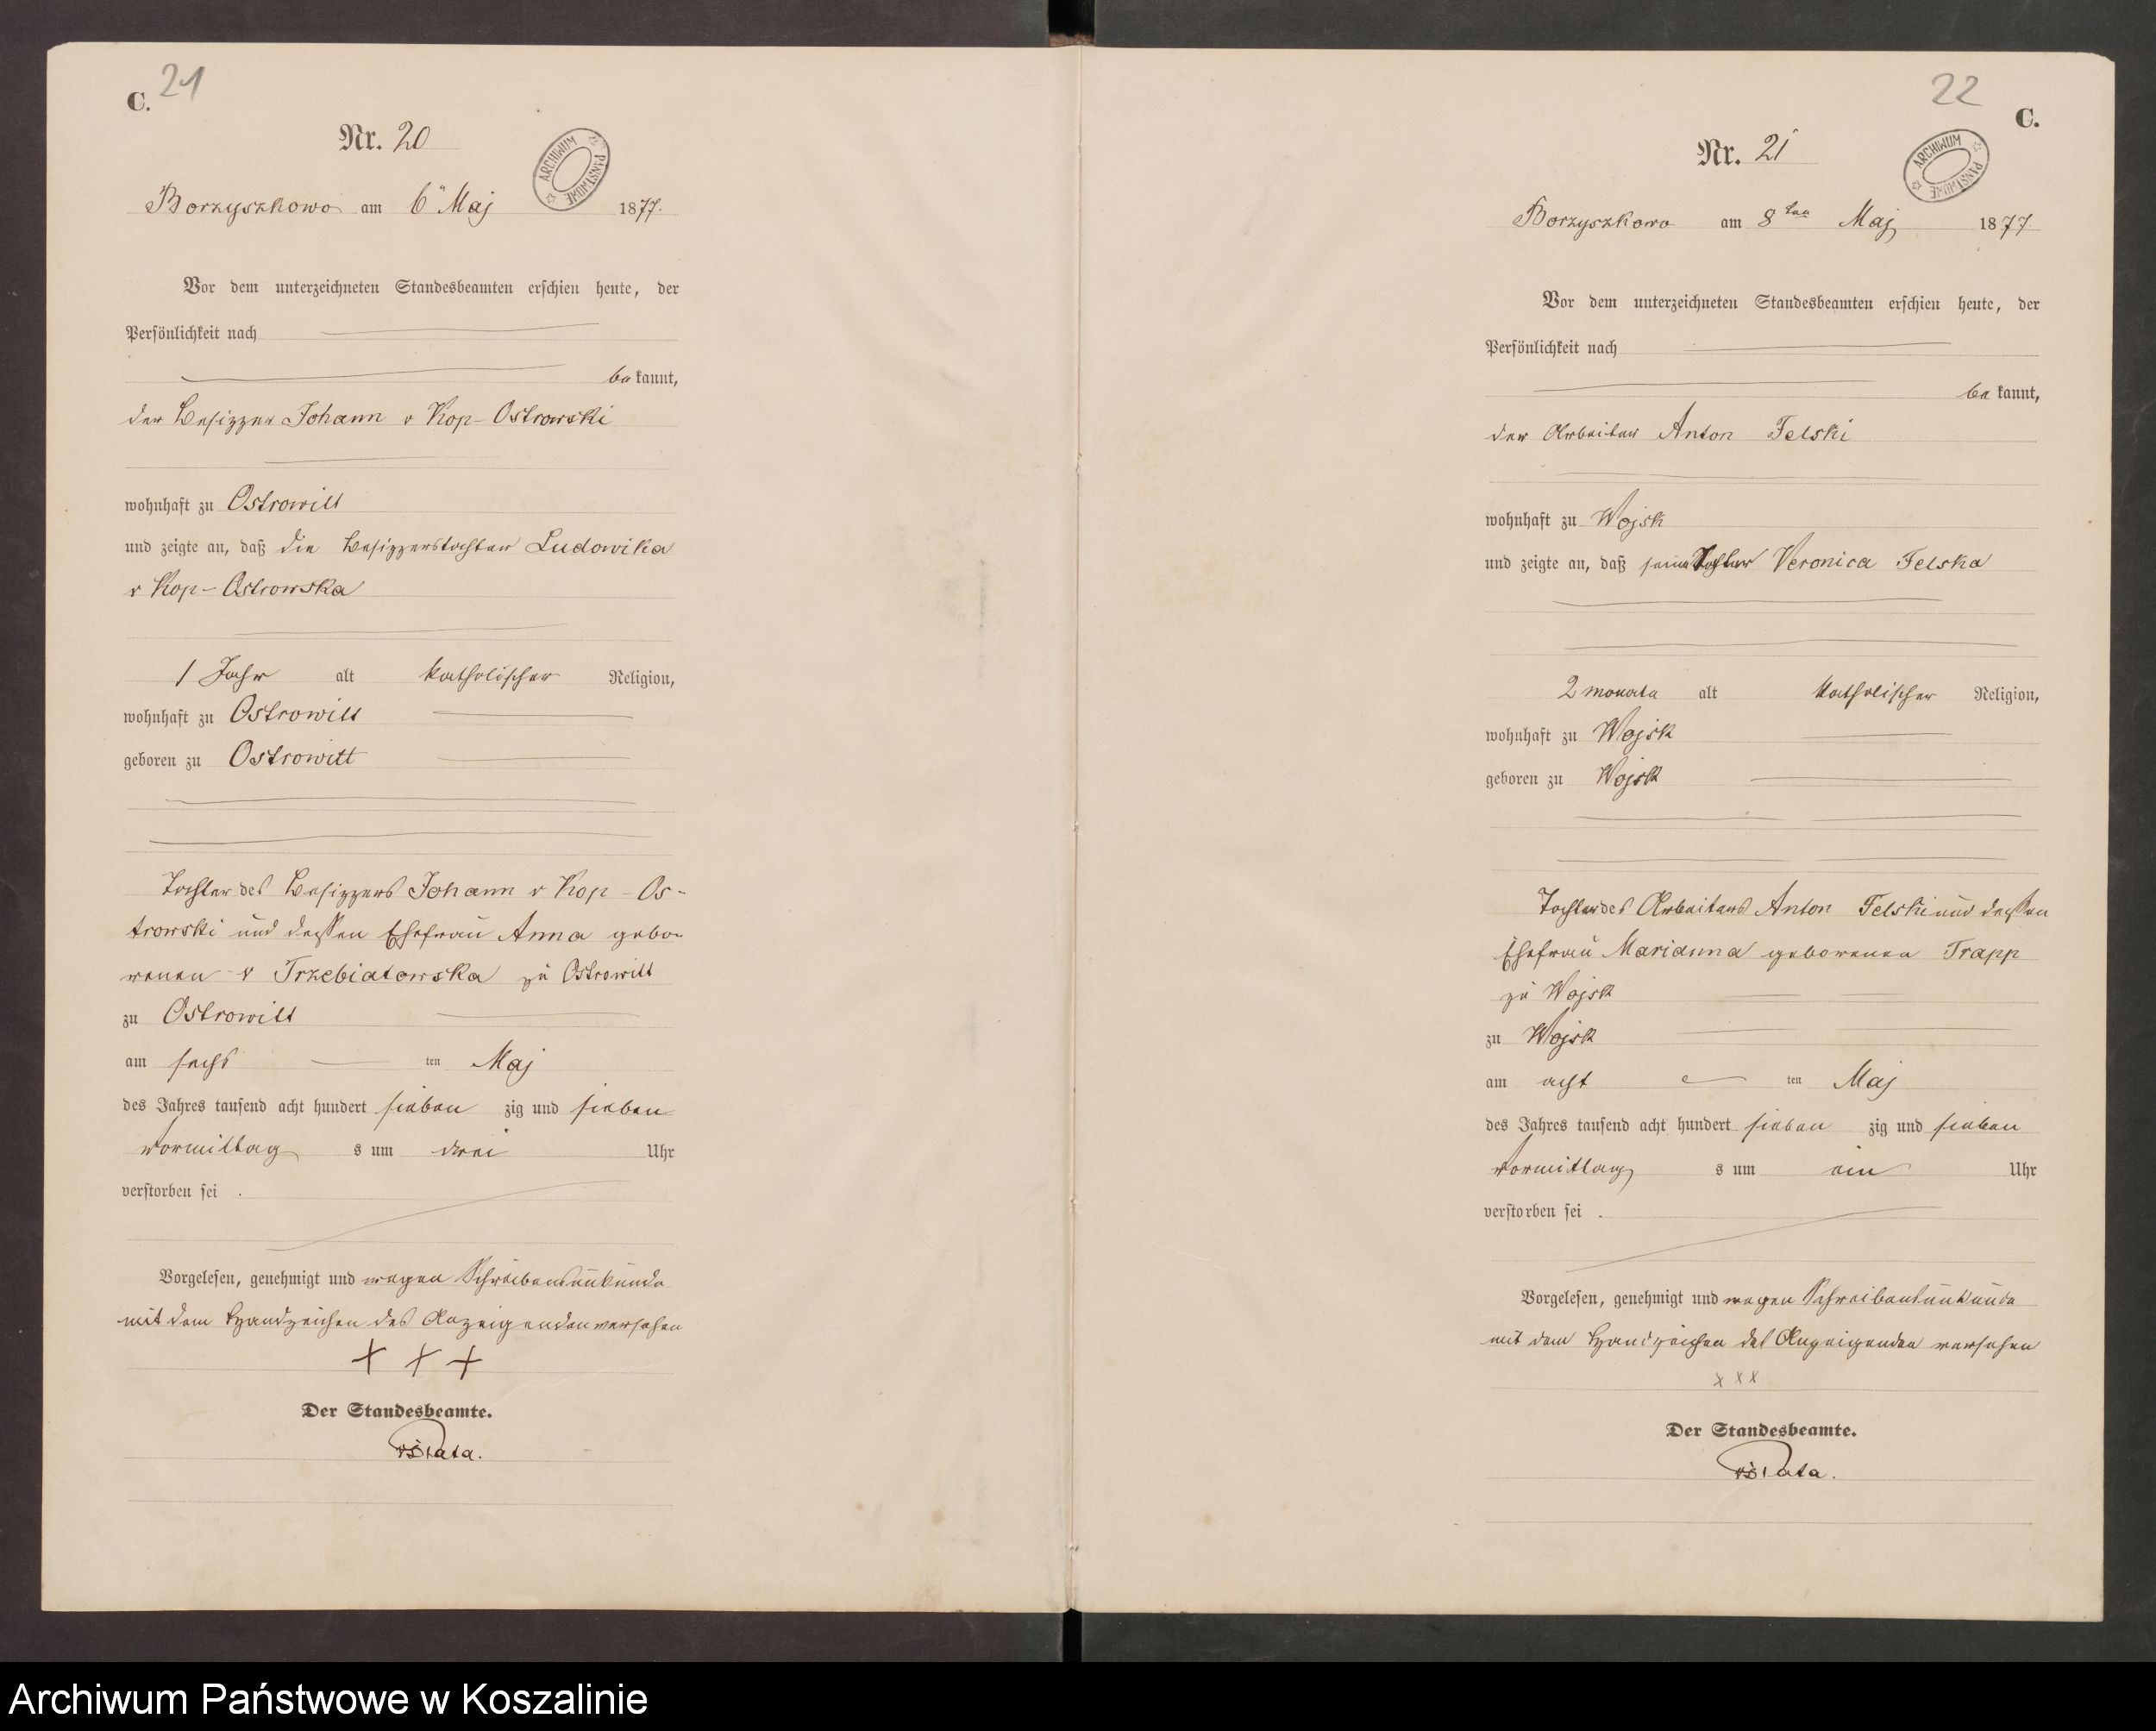 C.
21
Nr. 20
ARCHIWUM PAŃSTWOWE
Borzyszkowo am 6" Maj 1877.
Vor dem unterzeichneten Standesbeamten erschien heute, der
Persönlichkeit nach
be kannt,
der Besizzer Johann v Kop-Ostrowski
wohnhaft zu Ostrowitt
und zeigte an, daß die Besizzerstochter Ludowika
v Kop-Ostrowska
1 Jahr alt katholischer Religion,
wohnhaft zu Ostrowitt
geboren zu Ostrowitt
Tochter des Besizzers Johann v Kop-Os-
trowski und dessen Ehefrau Anna gebo-
renen v Trzebiatowska zu Ostrowitt
zu Ostrowitt
am sechs ten Maj
des Jahres tausend acht hundert sieben zig und sieben
vormittag s um drei Uhr
verstorben sei .
Vorgelesen, genehmigt und wegen Schreibensunkunde
mit dem Handzeichen des Anzeigenden versehen
+ + +
Der Standesbeamte.
22
C.
Nr. 21
ARCHIWUM PAŃSTWOWE
Borzyszkowo am 8 ten Maj 1877.
Vor dem unterzeichneten Standesbeamten erschien heute, der
Persönlichkeit nach
be kannt,
der Arbeiter Anton Felski
wohnhaft zu Wojsk
und zeigte an, daß seine Tochter Veronica Felska
2 monate alt katholischer Religion,
wohnhaft zu Wojsk
geboren zu Wojsk
Tochter des Arbeiters Anton Felski und dessen
Ehefrau Marianna geborenen Trapp
zu Wojsk
zu Wojsk
am acht ten Maj
des Jahres tausend acht hundert sieben zig und sieben
vormittag s um ein Uhr
verstorben sei .
Vorgelesen, genehmigt und wegen Schreibensunkunde
mit dem Handzeichen des Anzeigenden versehen
x x x
Der Standesbeamte.
Archiwum Państwowe w Koszalinie